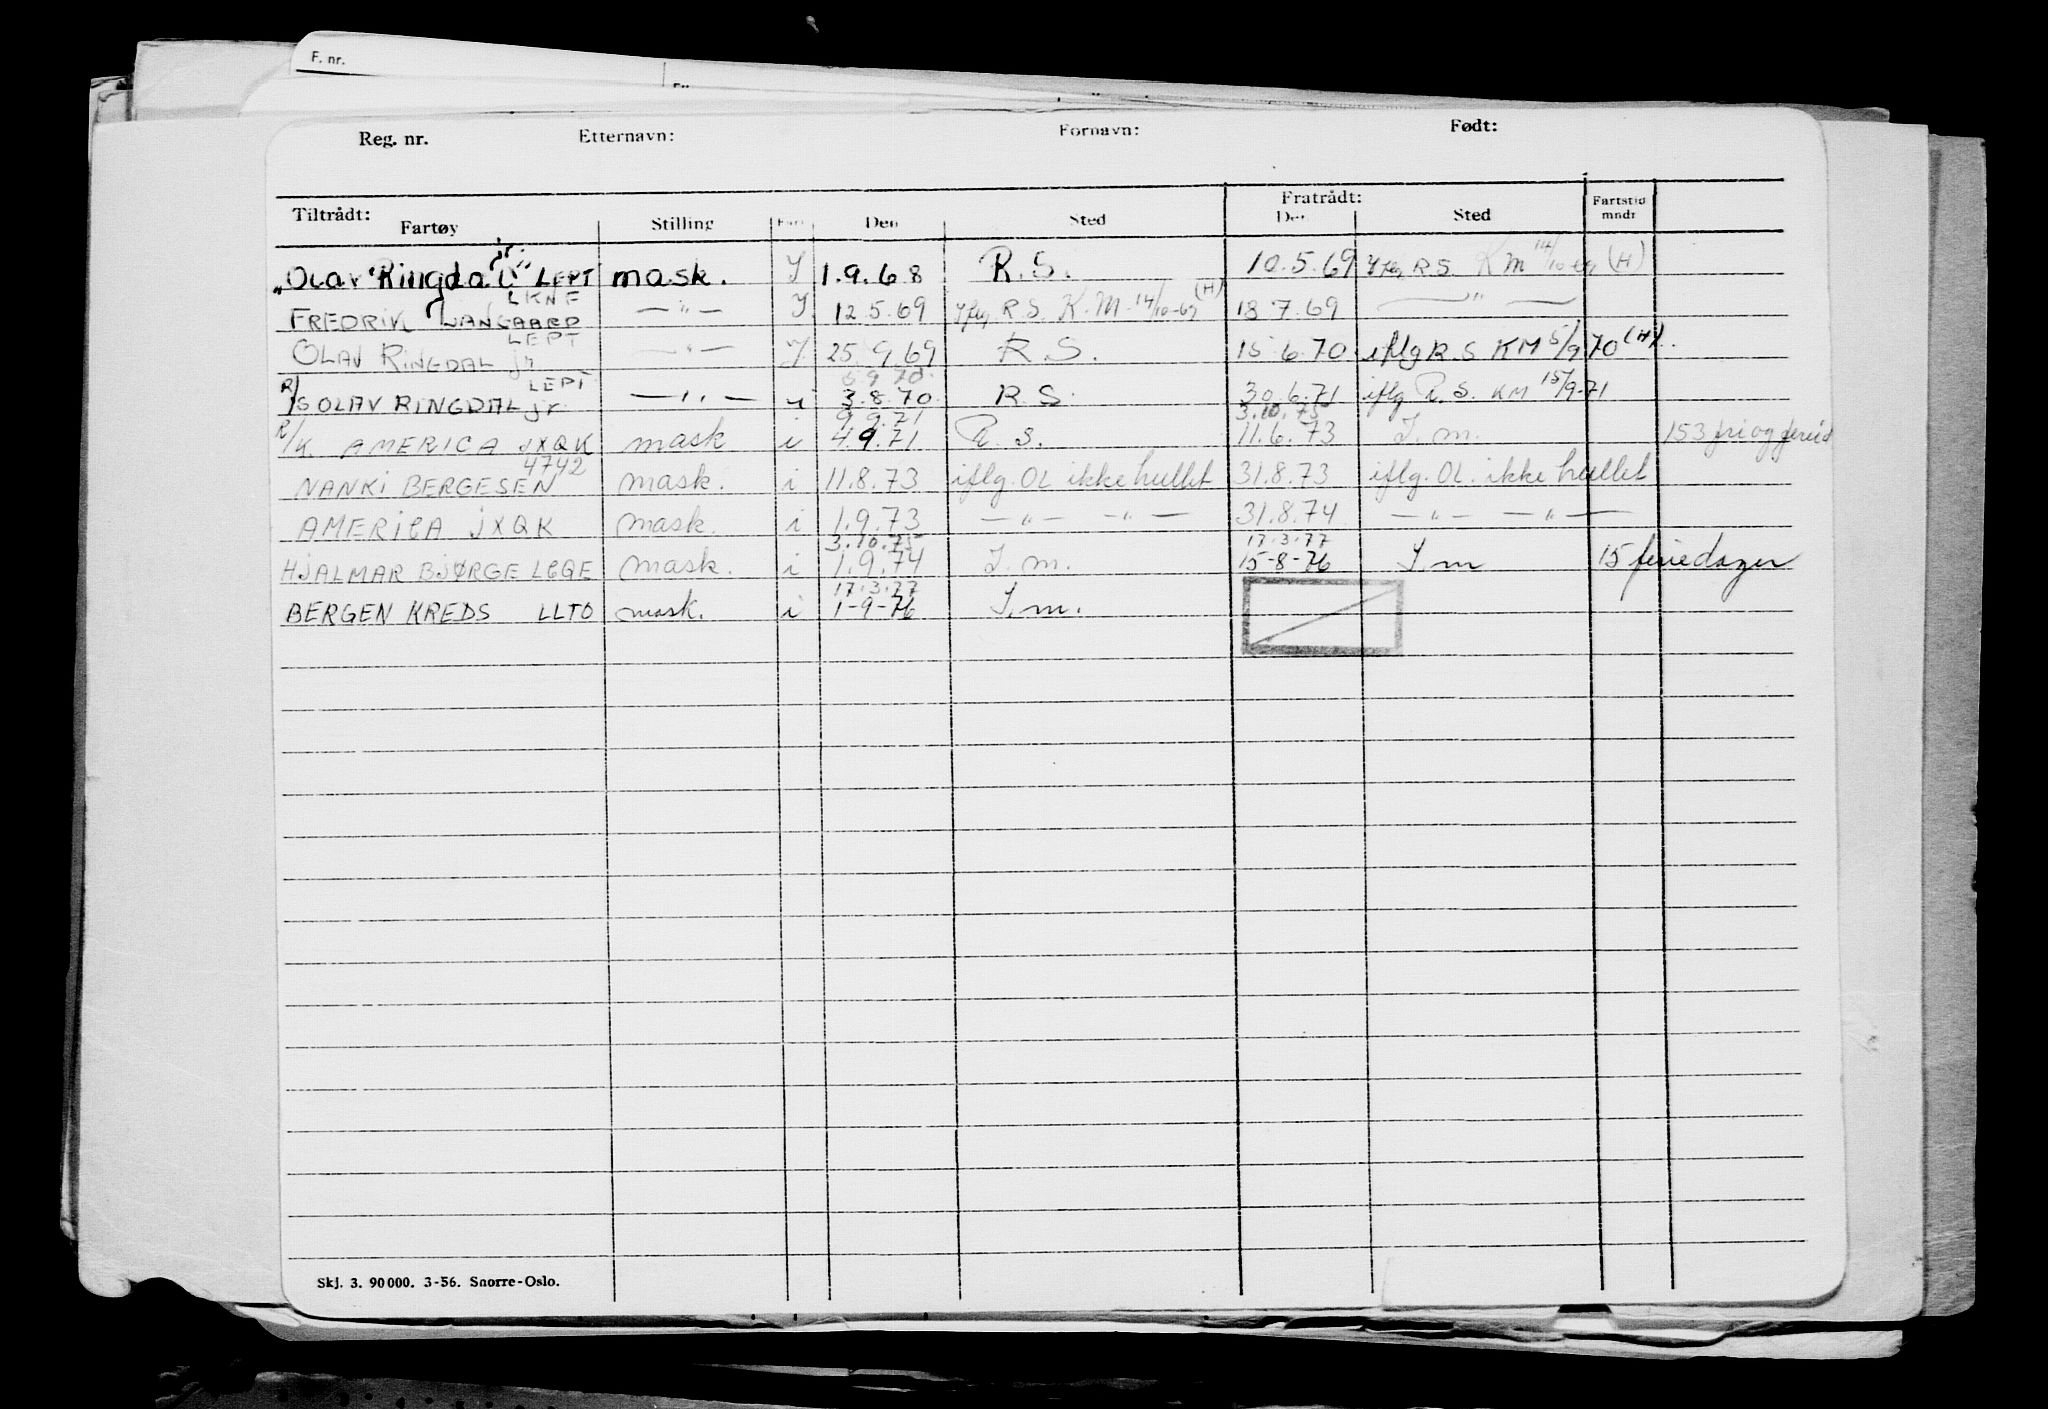 F. nr.
Reg. nr. Etternavn: Fornavn: Født:
Tiltrådt: Fratrådt:
Fartøy Stilling Fart Den Sted Den Sted Fartstid mndr
„Olav Ringdal jr." LEPT mask. I 1.9.68 R.S. 10.5.69 Iflg R S. K M 14/10-69 (H)
FREDRIK LANGAARD LKNF —"— I. 12.5.69 Iflg. R.S. K.M. 14/10-69 (H) 18.7.69 —"—
OLAV RINGDAL jr LEPT —"— I 25.9.69 R.S. 15.6.70 iflg R.S KM 5/9 70 (H).
R/S OLAV RINGDAL jr LEPT —"— i 5.9.70. 3.8.70. R.S. 30.6.71 iflg R.S. KM 15/9-71
R/K. AMERICA JXQK mask i 9.9.71 4.9.71 R.S. 3.10.75 11.6.73 I.m. 153 fri og feried
NANKI BERGESEN 4742 mask. i 11.8.73 iflg. OL ikke hullet 31.8.73 iflg. OL. ikke hullet
AMERICA JXQK mask. i 1.9.73 —"— —"— 31.8.74 —"— —"—
HJALMAR BJØRGE LCQE mask. i 3.10.75 1.9.74 I.m. 17.3.77 15-8-76 I.m 15 feriedager
BERGEN KREDS LLTO mask. i 17.3.77 1-9-76 I.m.
Skj. 3. 90000. 3-56. Snorre-Oslo.